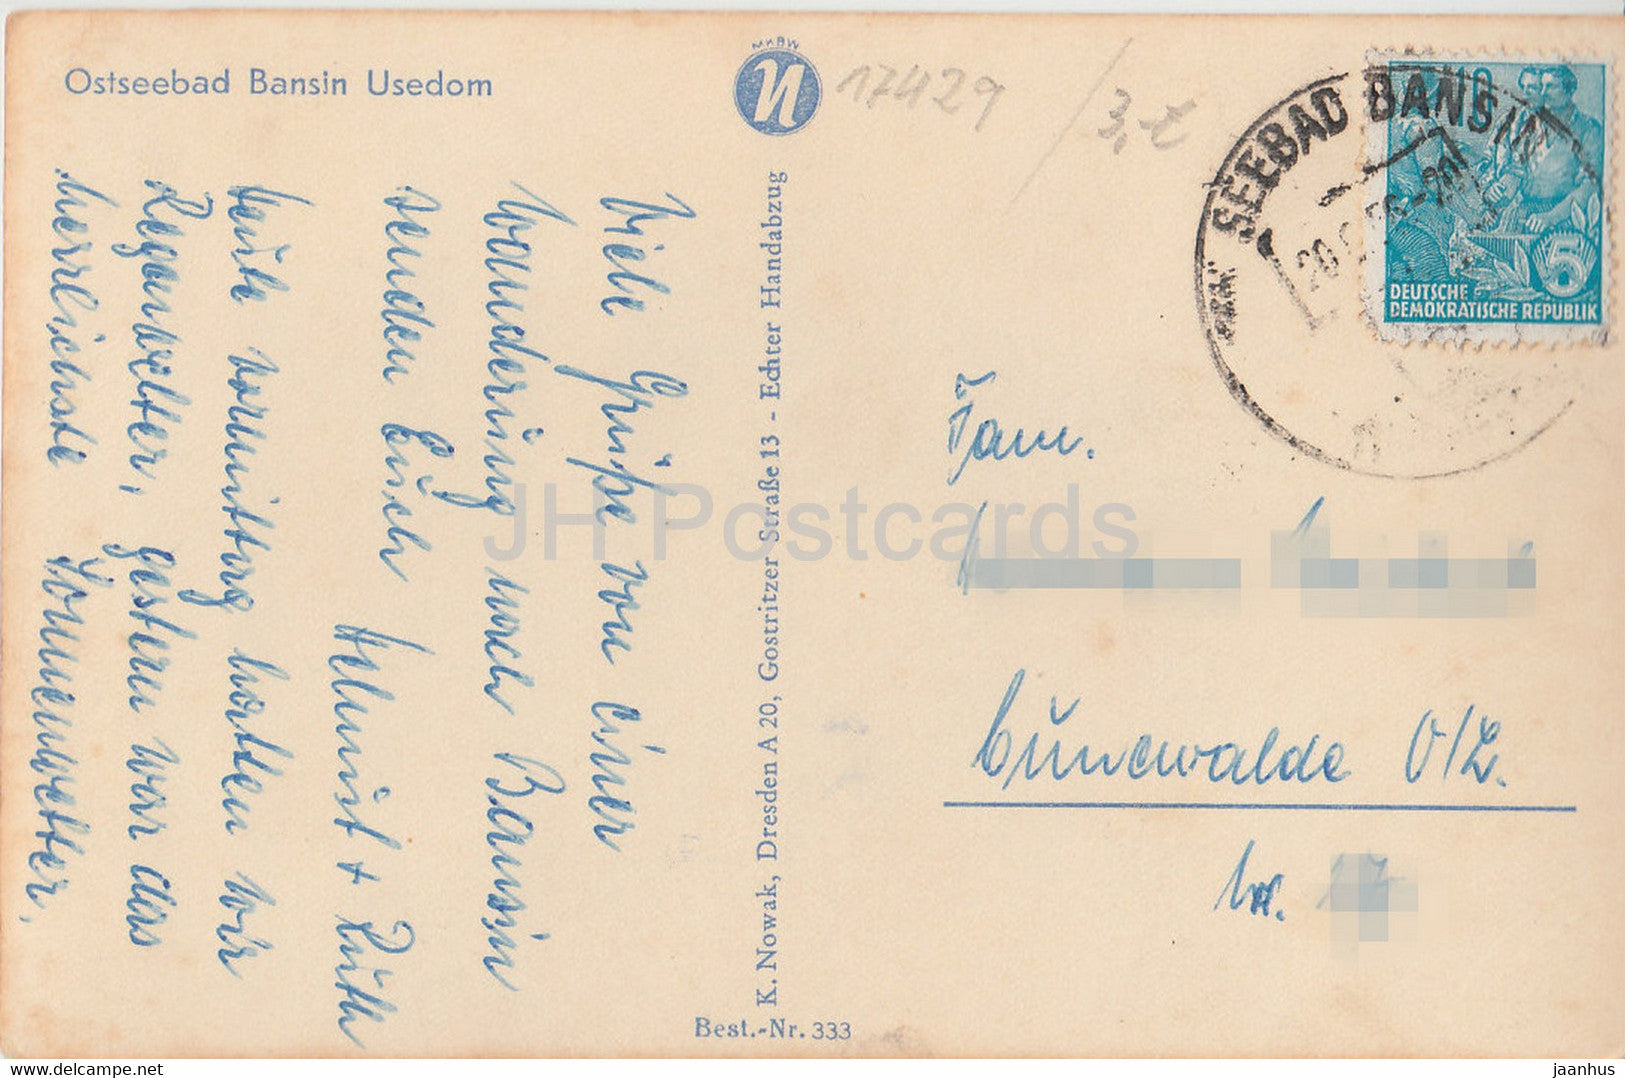 Ostseebad Bansin Usedom
MKBW
17429
3,-
SEEBAD BANSIN
5
DEUTSCHE
DEMOKRATISCHE REPUBLIK
Viele Grüße von einer
Wanderung nach Bansin
senden Euch
Helmut + Ruth
Heute vormittag hatten wir
Regenwetter, gestern war das
herrlichste Sonnenwetter.
K. Nowak, Dresden A 20, Gostritzer Straße 13 - Echter Handabzug
Best.-Nr. 333
Fam.
Cunewalde O/L.
Nr. 17
JH Postcards
www.delcampe.net
jaanhus